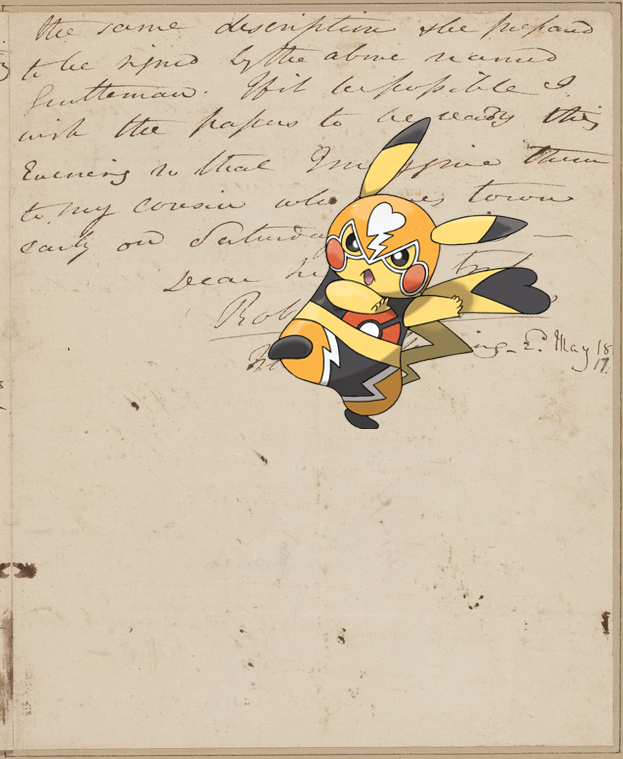 the same description & be prepared
to be signed by the above named
Gentleman. If it be possible I
wish the papers to be ready this
Evening so that I may give them
to my cousin who town
early on Saturday
Dear
Rob
May 18
17